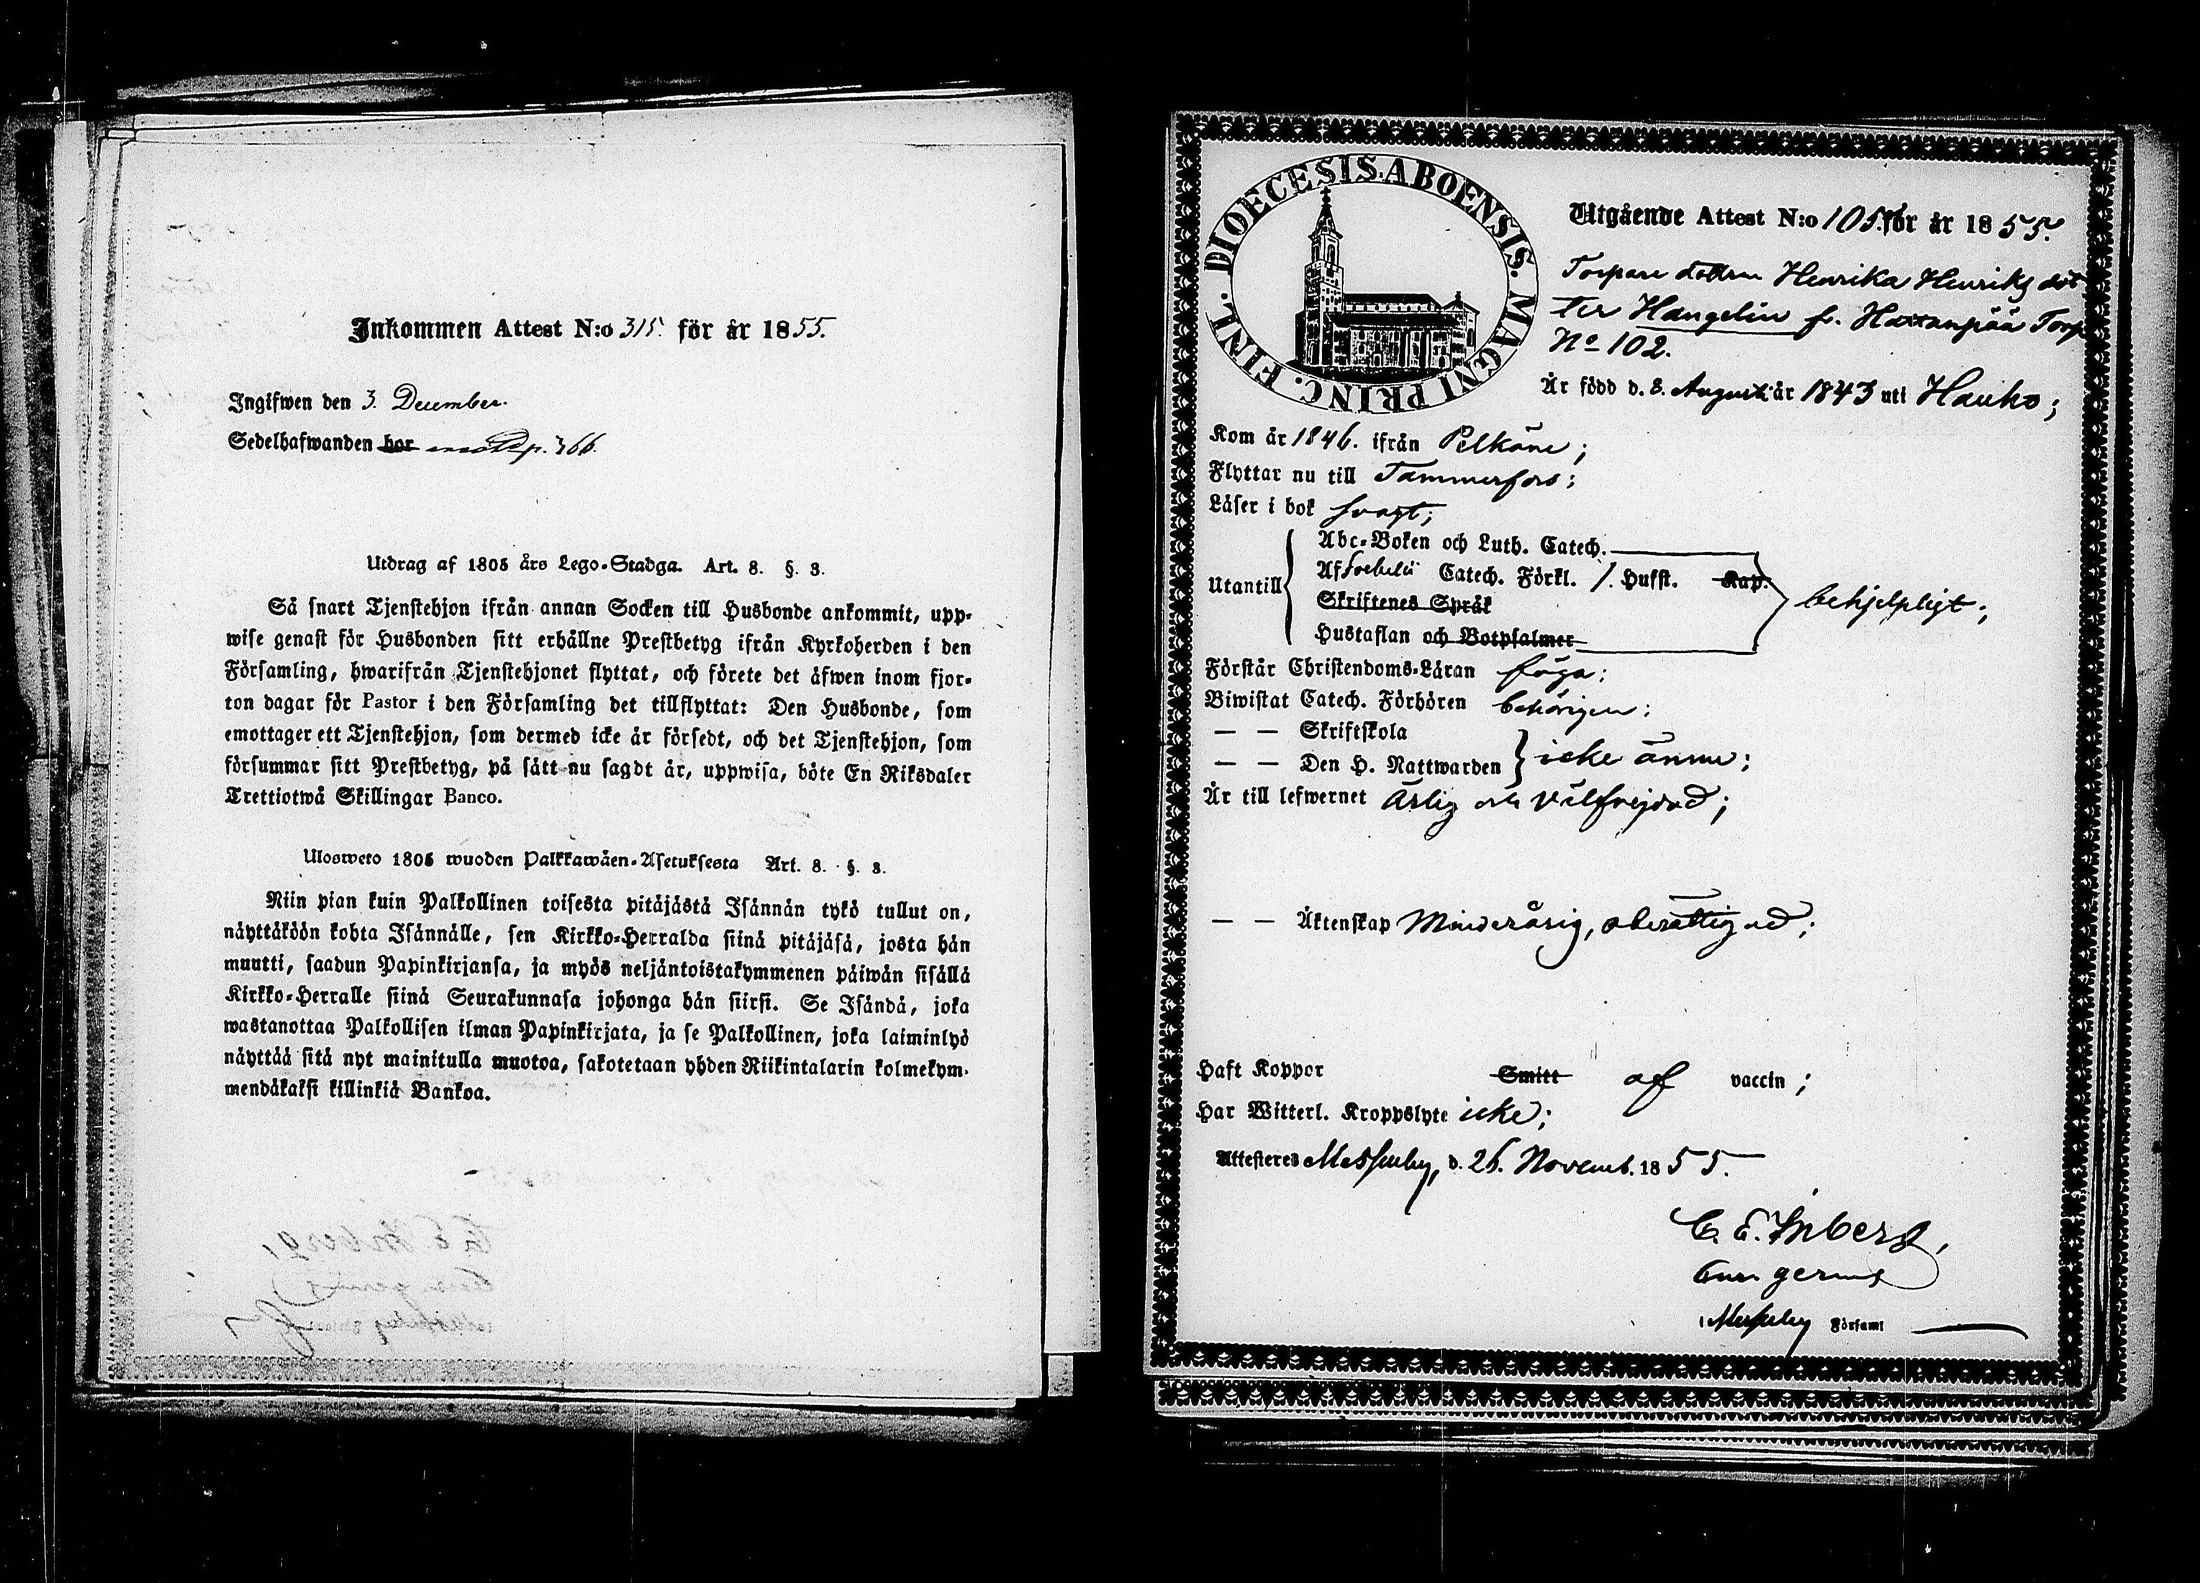 Inkommen Attest N:o 315. för år 1855.
Ingifwen den 3. December.
Sedelhafwanden bor p. 366.
Utdrag af 1805 års Lego-Stadga. Art. 8. §. 3.
Så snart Tjenstehjon ifrån annan Socken till Husbonde ankommit, upp-
wise genast för Husbonden sitt erhållne Prestbetyg ifrån Kyrkoherden i den
Församling, hwarifrån Tjenstehjonet flyttat, och förete det äfwen inom fjor-
ton dagar för Pastor i den Församling det tillflyttat: Den Husbonde, som
emottager ett Tjenstehjon, som dermed icke är försedt, och det Tjenstehjon, som
försummar sitt Prestbetyg, på sätt nu sagdt är, uppwisa, böte En Riksdaler
Trettiotwå Skillingar Banco.
Ulosweto 1805 wuoden Palkkawäen-Asetuksesta Art. 8. §. 3.
Niin pian kuin Palkollinen toisesta pitäjästä Isännän tykö tullut on,
näyttäköön kohta Isännälle, sen Kirkko-Herralda siinä pitäjäsä, josta hän
muutti, saadun Papinkirjansa, ja myös neljäntoistakymmenen päiwän sisällä
Kirkko-Herralle siinä Seurakunnasa johonga hän siirsi. Se Isändä, joka
wastanottaa Palkollisen ilman Papinkirjata, ja se Palkollinen, joka laiminlyö
näyttää sitä nyt mainitulla muotoa, sakotetaan yhden Riikintalarin kolmekym-
mendäkaksi killinkiä Bankoa.
DIOECESIS. ABOENSIS. MAGNI PRINC. FINL.
Utgående Attest N:o 105. för år 1855.
Torpare dottren Henrika Henriks dot
ter Hangelin fr. Hattanpää Torp
No 102.
Är född d. 8. Augusti år 1843 uti Hauho;
Kom år 1846. ifrån Pelkäne;
Flyttar nu till Tammerfors;
Läser i bok svagt;
Utantill
Abc-Boken och Luth. Catech.
Af Svebelii Catech. Förkl. 1. Hufst. Kap.
Skriftenes Språk
Hustaflan och Botpsalmer
behjelpligt;
Förstår Christendoms-Läran föga;
Biwistat Catech. Förhören behörigen;
— — Skriftskola
— — Den H. Nattwarden icke ännu;
Är till lefwernet ärlig och välfrejdad;
— — Äktenskap Minderårig, oberättigad;
Haft Koppor Smitt af vaccin;
Har Witterl. Kroppslyte icke;
Attesteres Messuby, d. 26. Novemb. 1855.
C. E. Inberg,
gerens
i Messuby Församl